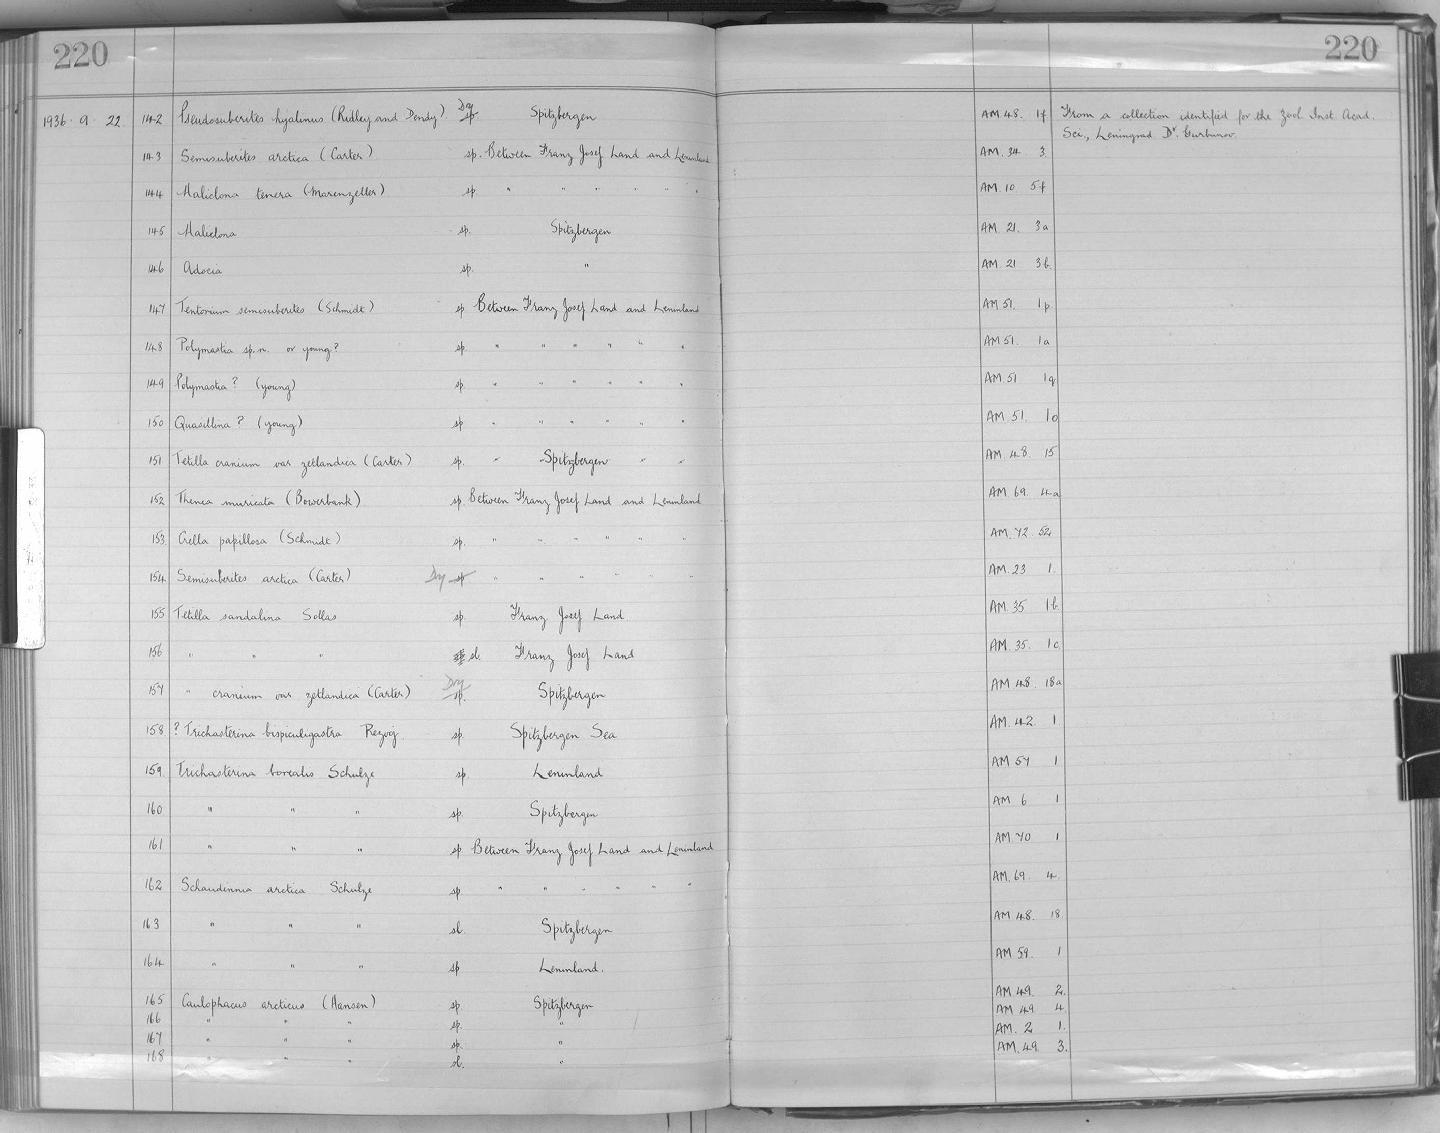 220 220
1936. 9. 22. 142 Pseudosuberites hyalinus (Ridley and Dendy) Dry sp. Spitzbergen AM.48. 1f From a collection identified for the Zool. Inst. Acad.
Sci., Leningrad Dr. Gurbunov.
143 Semisuberites arctica (Carter) sp. Between Franz Josef Land and Leninland AM. 34 3.
144 Haliclona tenera (Marenzeller) sp. " " " " " " AM. 10 5f
145 Haliclona sp. Spitzbergen AM. 21. 3a
146 Adocia sp. " AM. 21 3b.
147 Tentorium semisuberites (Schmidt) sp Between Franz Josef Land and Leninland AM 51. 1p.
148 Polymastia sp. n. or young? sp. " " " " " " AM 51. 1a
149 Polymastia? (young) sp. " " " " " " AM. 51 1q
150 Quasillina? (young) sp " " " " " " AM. 51. 1o
151 Tetilla cranium var zetlandica (Carter) sp. " " Spitzbergen " " AM. 48. 15
152 Thenea muricata (Bowerbank) sp. Between Franz Josef Land and Leninland AM. 69. 4a
153. Crella papillosa (Schmidt) sp. " " " " " " AM. 72 52
154 Semisuberites arctica (Carter) Dry sp " " " " " " AM. 23 1.
155 Tetilla sandalina Sollas sp. Franz Josef Land AM 35 1b.
156 " " " sl. Franz Josef Land AM. 35. 1c.
157 " cranium var zetlandica (Carter) Dry sp. Spitzbergen AM 48. 18a
158 ? Trichasterina bispiculigastra Rezvoj. sp. Spitzbergen Sea AM. 42. 1
159. Trichasterina borealis Schulze sp. Leninland AM 57 1
160 " " " sp. Spitzbergen AM 6 1
161 " " " sp. Between Franz Josef Land and Leninland AM. 70 1
162 Schaudinnia arctica Schulze sp " " " " " " AM. 69. 4.
163 " " " sl. Spitzbergen AM 48. 18.
164 " " " sp Leninland. AM 59. 1
165 Caulophacus arcticus (Hansen) sp. Spitzbergen AM 49. 2.
166 " " " sp. " AM 49 4.
167 " " " sp. " AM. 2 1.
168 " " " sl. " AM. 49. 3.